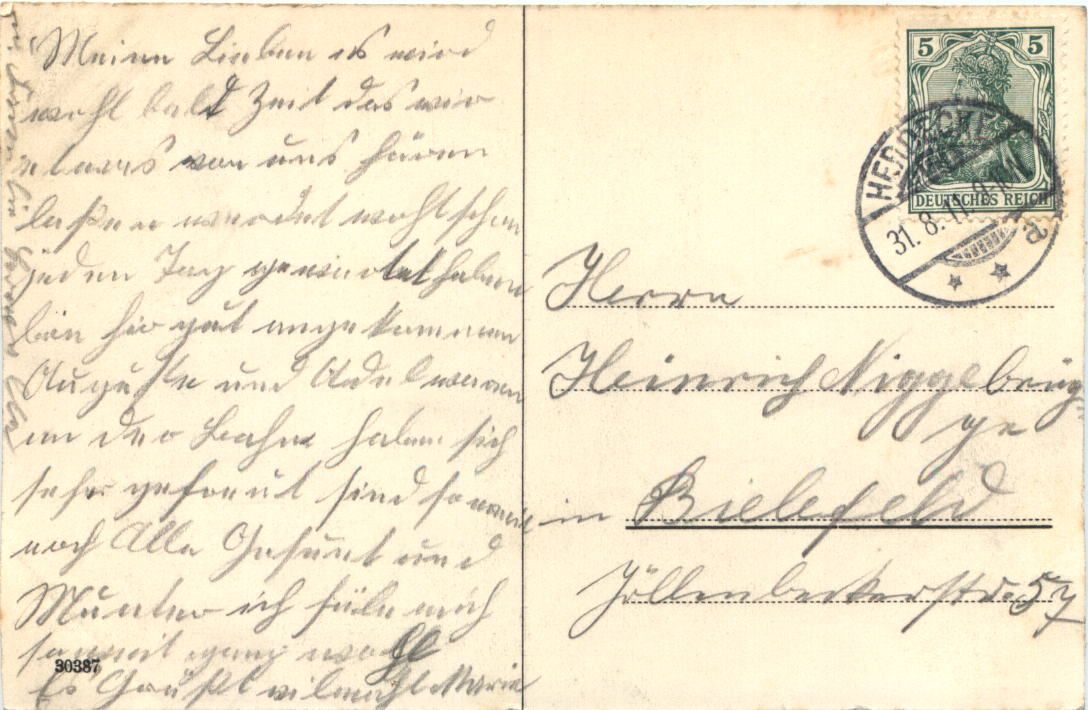 Meine Lieben es wird
wohl bald Zeit das wir
etwas von uns hören
laßen werdet wohl schon
jeden Tag gewartet haben
bin hir gut angekommen
Auguste und Adele waren
an der Bahn haben sich
sehr gefreut sind soweit
noch Alle Gesunt und
Munter ich füle mich
soweit ganz wohl
Es Grüßt vilmahl Marie
30387
5 5
DEUTSCHES REICH
HERDECKE
31. 8. 11. 9-10 N
a
Herrn
Heinrich Niggebrüg-
ge
in Bielefeld
Jöllenbeckerstr. 57